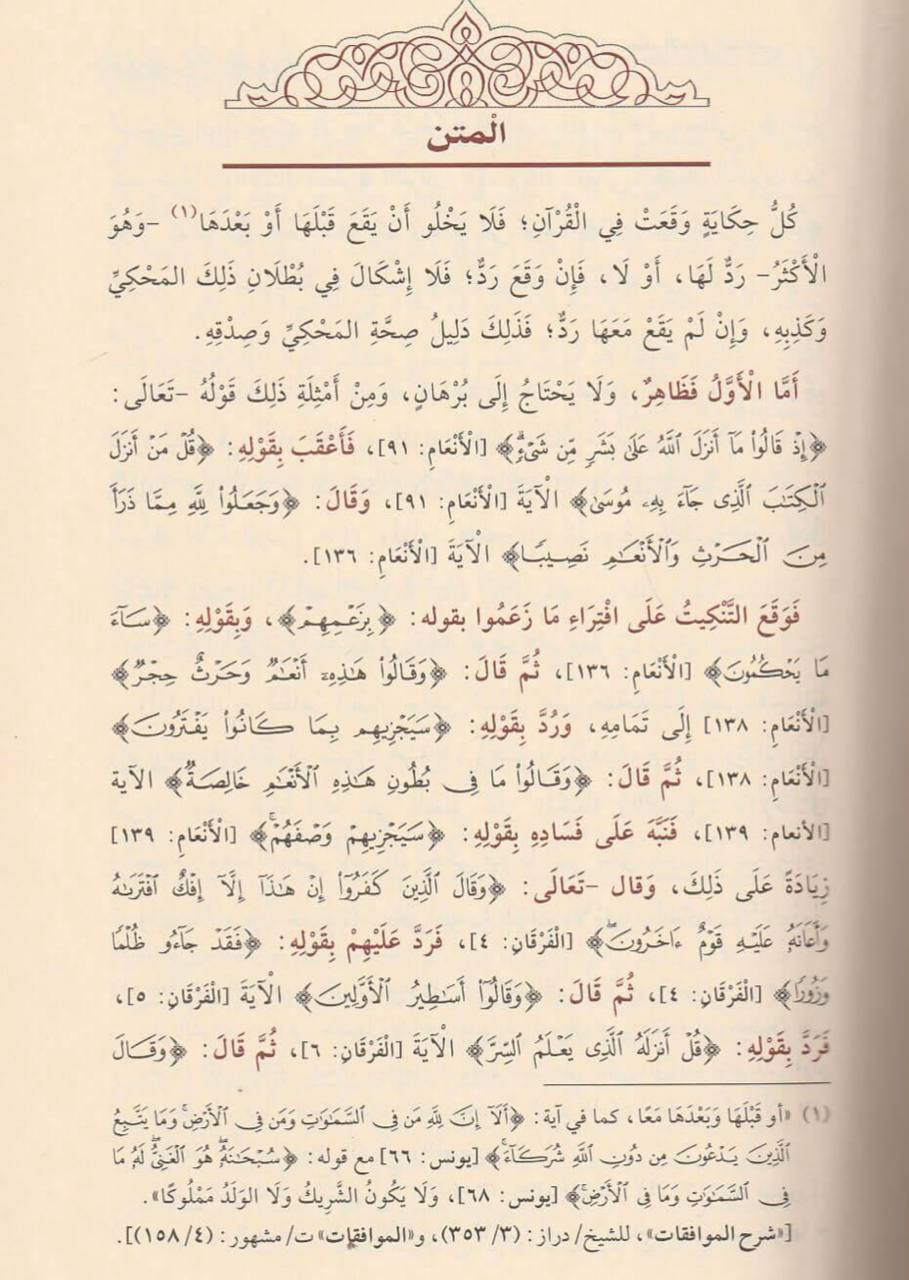 الْمتن
كُلُّ حِكَايَةٍ وَقَعَتْ فِي الْقُرْآنِ؛ فَلَا يَخْلُو أَنْ يَقَعَ قَبْلَهَا أَوْ بَعْدَهَا(١) -وَهُوَ
الْأَكْثَرُ- رَدٌّ لَهَا، أَوْ لَا، فَإِنْ وَقَعَ رَدٌّ؛ فَلَا إِشْكَالَ فِي بُطْلَانِ ذَلِكَ المَحْكِيِّ
وَكَذِبِهِ، وَإِنْ لَمْ يَقَعْ مَعَهَا رَدٌّ؛ فَذَلِكَ دَلِيلُ صِحَّةِ المَحْكِيِّ وَصِدْقِهِ.
أَمَّا الْأَوَّلُ فَظَاهِرٌ، وَلَا يَحْتَاجُ إِلَى بُرْهَانٍ، وَمِنْ أَمْثِلَةِ ذَلِكَ قَوْلُهُ -تَعَالَى:
﴿إِذۡ قَالُواْ مَآ أَنزَلَ ٱللَّهُ عَلَىٰ بَشَرٖ مِّن شَيۡءٖۗ﴾ [الْأَنْعَامِ: ٩١]، فَأَعْقَبَ بِقَوْلِهِ: ﴿قُلۡ مَنۡ أَنزَلَ
ٱلۡكِتَٰبَ ٱلَّذِي جَآءَ بِهِۦ مُوسَىٰ﴾ الْآيَةَ [الْأَنْعَامِ: ٩١]، وَقَالَ: ﴿وَجَعَلُواْ لِلَّهِ مِمَّا ذَرَأَ
مِنَ ٱلۡحَرۡثِ وَٱلۡأَنۡعَٰمِ نَصِيبٗا﴾ الْآيَةَ [الْأَنْعَامِ: ١٣٦].
فَوَقَعَ التَّنْكِيتُ عَلَى افْتِرَاءِ مَا زَعَمُوا بقوله: ﴿بِزَعۡمِهِمۡ﴾، وَبِقَوْلِهِ: ﴿سَآءَ
مَا يَحۡكُمُونَ﴾ [الْأَنْعَامِ: ١٣٦]، ثُمَّ قَالَ: ﴿وَقَالُواْ هَٰذِهِۦٓ أَنۡعَٰمٞ وَحَرۡثٌ حِجۡرٞ﴾
[الْأَنْعَامِ: ١٣٨] إِلَى تَمَامِهِ، وَرُدَّ بِقَوْلِهِ: ﴿سَيَجۡزِيهِم بِمَا كَانُواْ يَفۡتَرُونَ﴾
[الْأَنْعَامِ: ١٣٨]، ثُمَّ قَالَ: ﴿وَقَالُواْ مَا فِي بُطُونِ هَٰذِهِ ٱلۡأَنۡعَٰمِ خَالِصَةٞ﴾ الآية
[الأنعام: ١٣٩]، فَنَبَّهَ عَلَى فَسَادِهِ بِقَوْلِهِ: ﴿سَيَجۡزِيهِمۡ وَصۡفَهُمۡۚ﴾ [الْأَنْعَامِ: ١٣٩]
زِيَادَةً عَلَى ذَلِكَ، وَقال -تَعَالَى: ﴿وَقَالَ ٱلَّذِينَ كَفَرُوٓاْ إِنۡ هَٰذَآ إِلَّآ إِفۡكٌ ٱفۡتَرَىٰهُ
وَأَعَانَهُۥ عَلَيۡهِ قَوۡمٌ ءَاخَرُونَۖ﴾ [الْفُرْقَانِ: ٤]، فَرَدَّ عَلَيْهِمْ بِقَوْلِهِ: ﴿فَقَدۡ جَآءُو ظُلۡمٗا
وَزُورٗا﴾ [الْفُرْقَانِ: ٤]، ثُمَّ قَالَ: ﴿وَقَالُوٓاْ أَسَٰطِيرُ ٱلۡأَوَّلِينَ﴾ الْآيَةَ [الْفُرْقَانِ: ٥]،
فَرَدَّ بِقَوْلِهِ: ﴿قُلۡ أَنزَلَهُ ٱلَّذِي يَعۡلَمُ ٱلسِّرَّ﴾ الْآيَةَ [الْفُرْقَانِ: ٦]، ثُمَّ قَالَ: ﴿وَقَالَ
(١) «أو قَبْلَهَا وَبَعْدَهَا مَعًا، كما في آية: ﴿أَلَآ إِنَّ لِلَّهِ مَن فِي ٱلسَّمَٰوَٰتِ وَمَن فِي ٱلۡأَرۡضِۗ وَمَا يَتَّبِعُ
ٱلَّذِينَ يَدۡعُونَ مِن دُونِ ٱللَّهِ شُرَكَآءَۚ﴾ [يونس: ٦٦] مع قوله: ﴿سُبۡحَٰنَهُۥۖ هُوَ ٱلۡغَنِيُّۖ لَهُۥ مَا
فِي ٱلسَّمَٰوَٰتِ وَمَا فِي ٱلۡأَرۡضِۚ﴾ [يونس: ٦٨]، وَلَا يَكُونُ الشَّرِيكُ وَلَا الوَلَدُ مَمْلُوكًا».
[«شرح الموافقات»، للشيخ/ دراز: (٣/ ٣٥٣)، و«الموافقات» ت/ مشهور: (٤/ ١٥٨)].